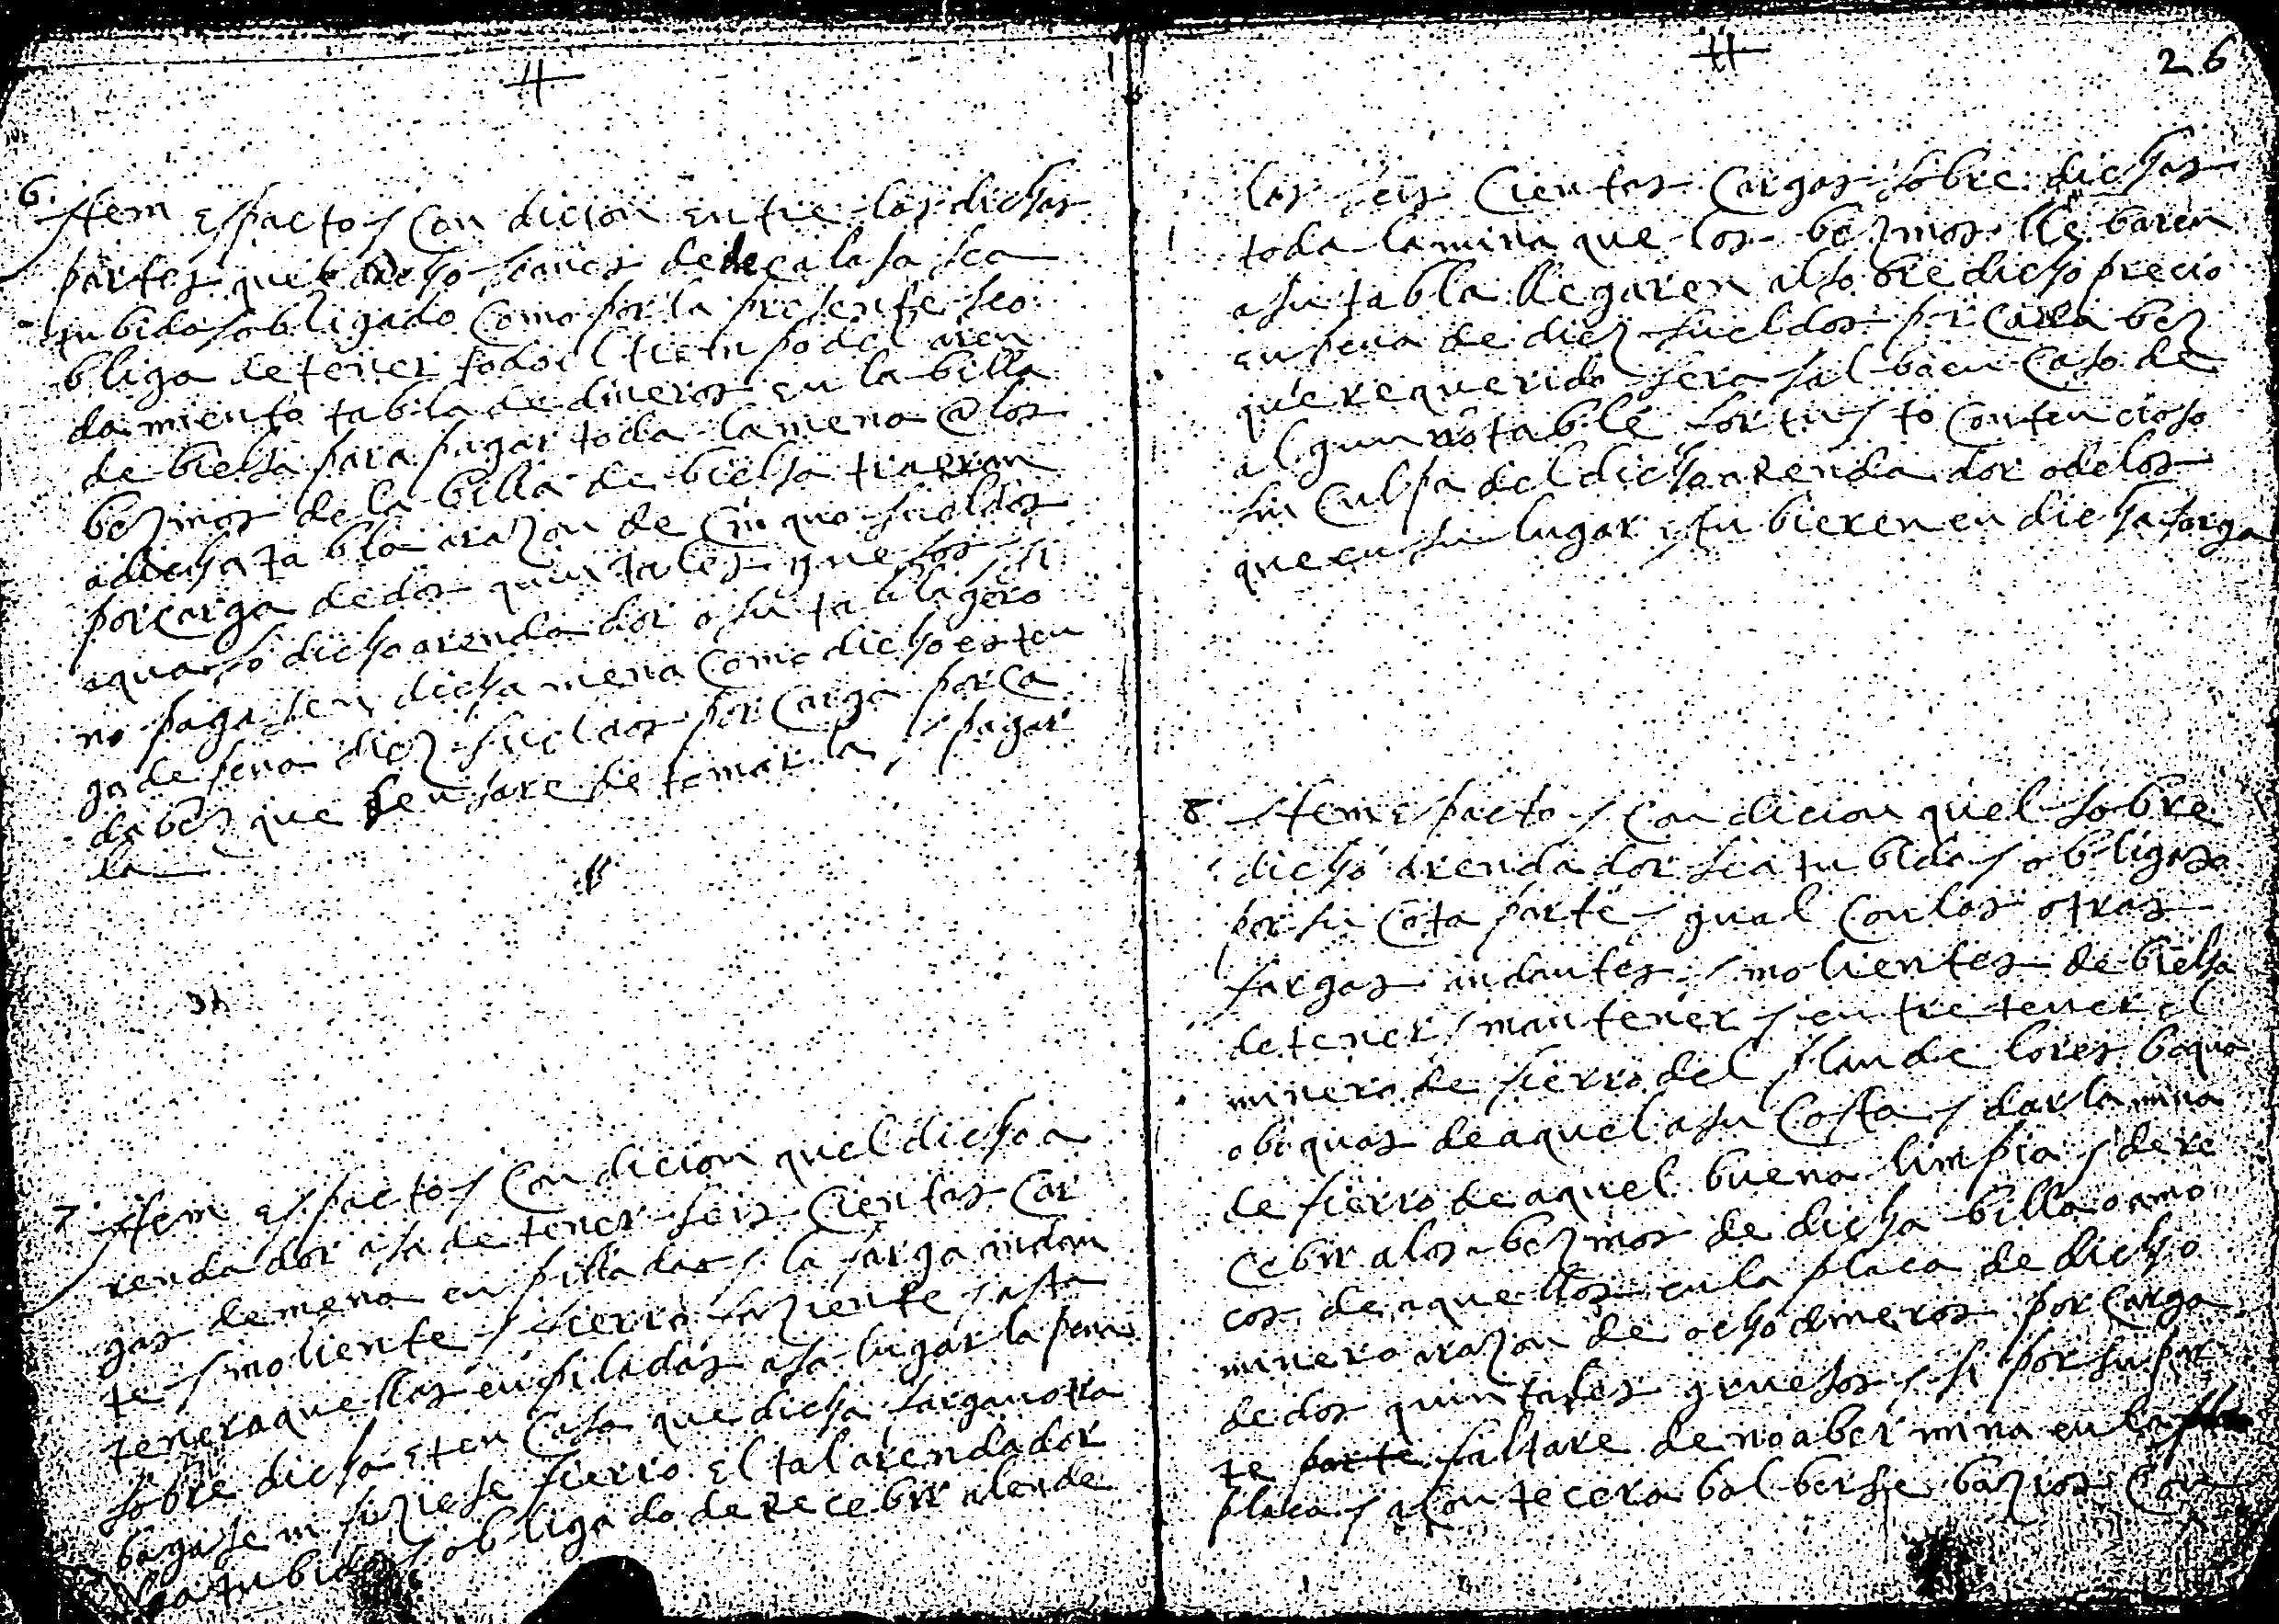 6. Item es pacto y condicion entre las dichas
partes quel dicho de de calasa sea
tubido y obligado como por la presente se o
bliga de tener todo el tiempo del aren
damiento tabla de dineros en la billa
de bielsa para pagar toda la mena a los
bezinos de la billa de bielsa traeran
a dicha tabla a razon de cinquo sueldos
por carga de dos quintales gruesos y si
aquel o dicho arendador o su tablagero
no pagasen dicha mena como dicho es ten
ga de pena diez sueldos por carga por ca
da bez que de tomar la y pagar
la
7. Item es pacto y condicion quel dicho a
rendador aya de tener seis cientas car
gas de mena enpilladas y la farga andan
te y moliente y fierro faziente y asta
tener aquellas enpiladas aya lugar la pena
sobre dicha et en caso que dicha farga no tra
bagase ni fiziese fierro el tal arendador
sea tubido y obligado de recebir alende
26
las seis cientas cargas sobre dichas
toda la mina que los bezinos lle baren
a su tabla y pagaren al sobre dicho precio
en pena de diez sueldos por cada bez
que requerido sera salbo en caso de
algun notable fortuyto contencioso
sin culpa del dicho arendador o de los
que en su lugar estubieren en dicha farga
8. Item es pacto y condicion quel sobre
dicho arendador sea tubido y obligado
por su cota parte ygual con las otras
fargas andantes y molientes de bielsa
de tener y mantener y entretener el
minero de fierro del plan de lores boqua
o boquas de aquel a su costa y dar la mina
de fierro de aquel buena limpia y de re
cebir a los bezinos de dicha billa o amo
cos de aquellos en la placa de dicho
minero a razon de ocho dineros por carga
de dos quintales gruesos y si por su par
te faltare de no aber mina en la
placa y acontecera bolberse bazios con